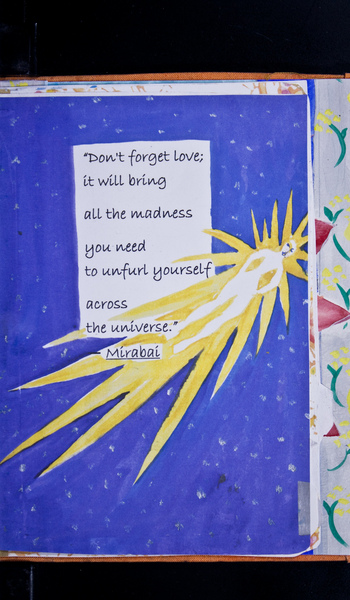 "Don't forget love;
it will bring
all the madness
you need
to unfurl yourself
across
the universe."
~ Mirabai